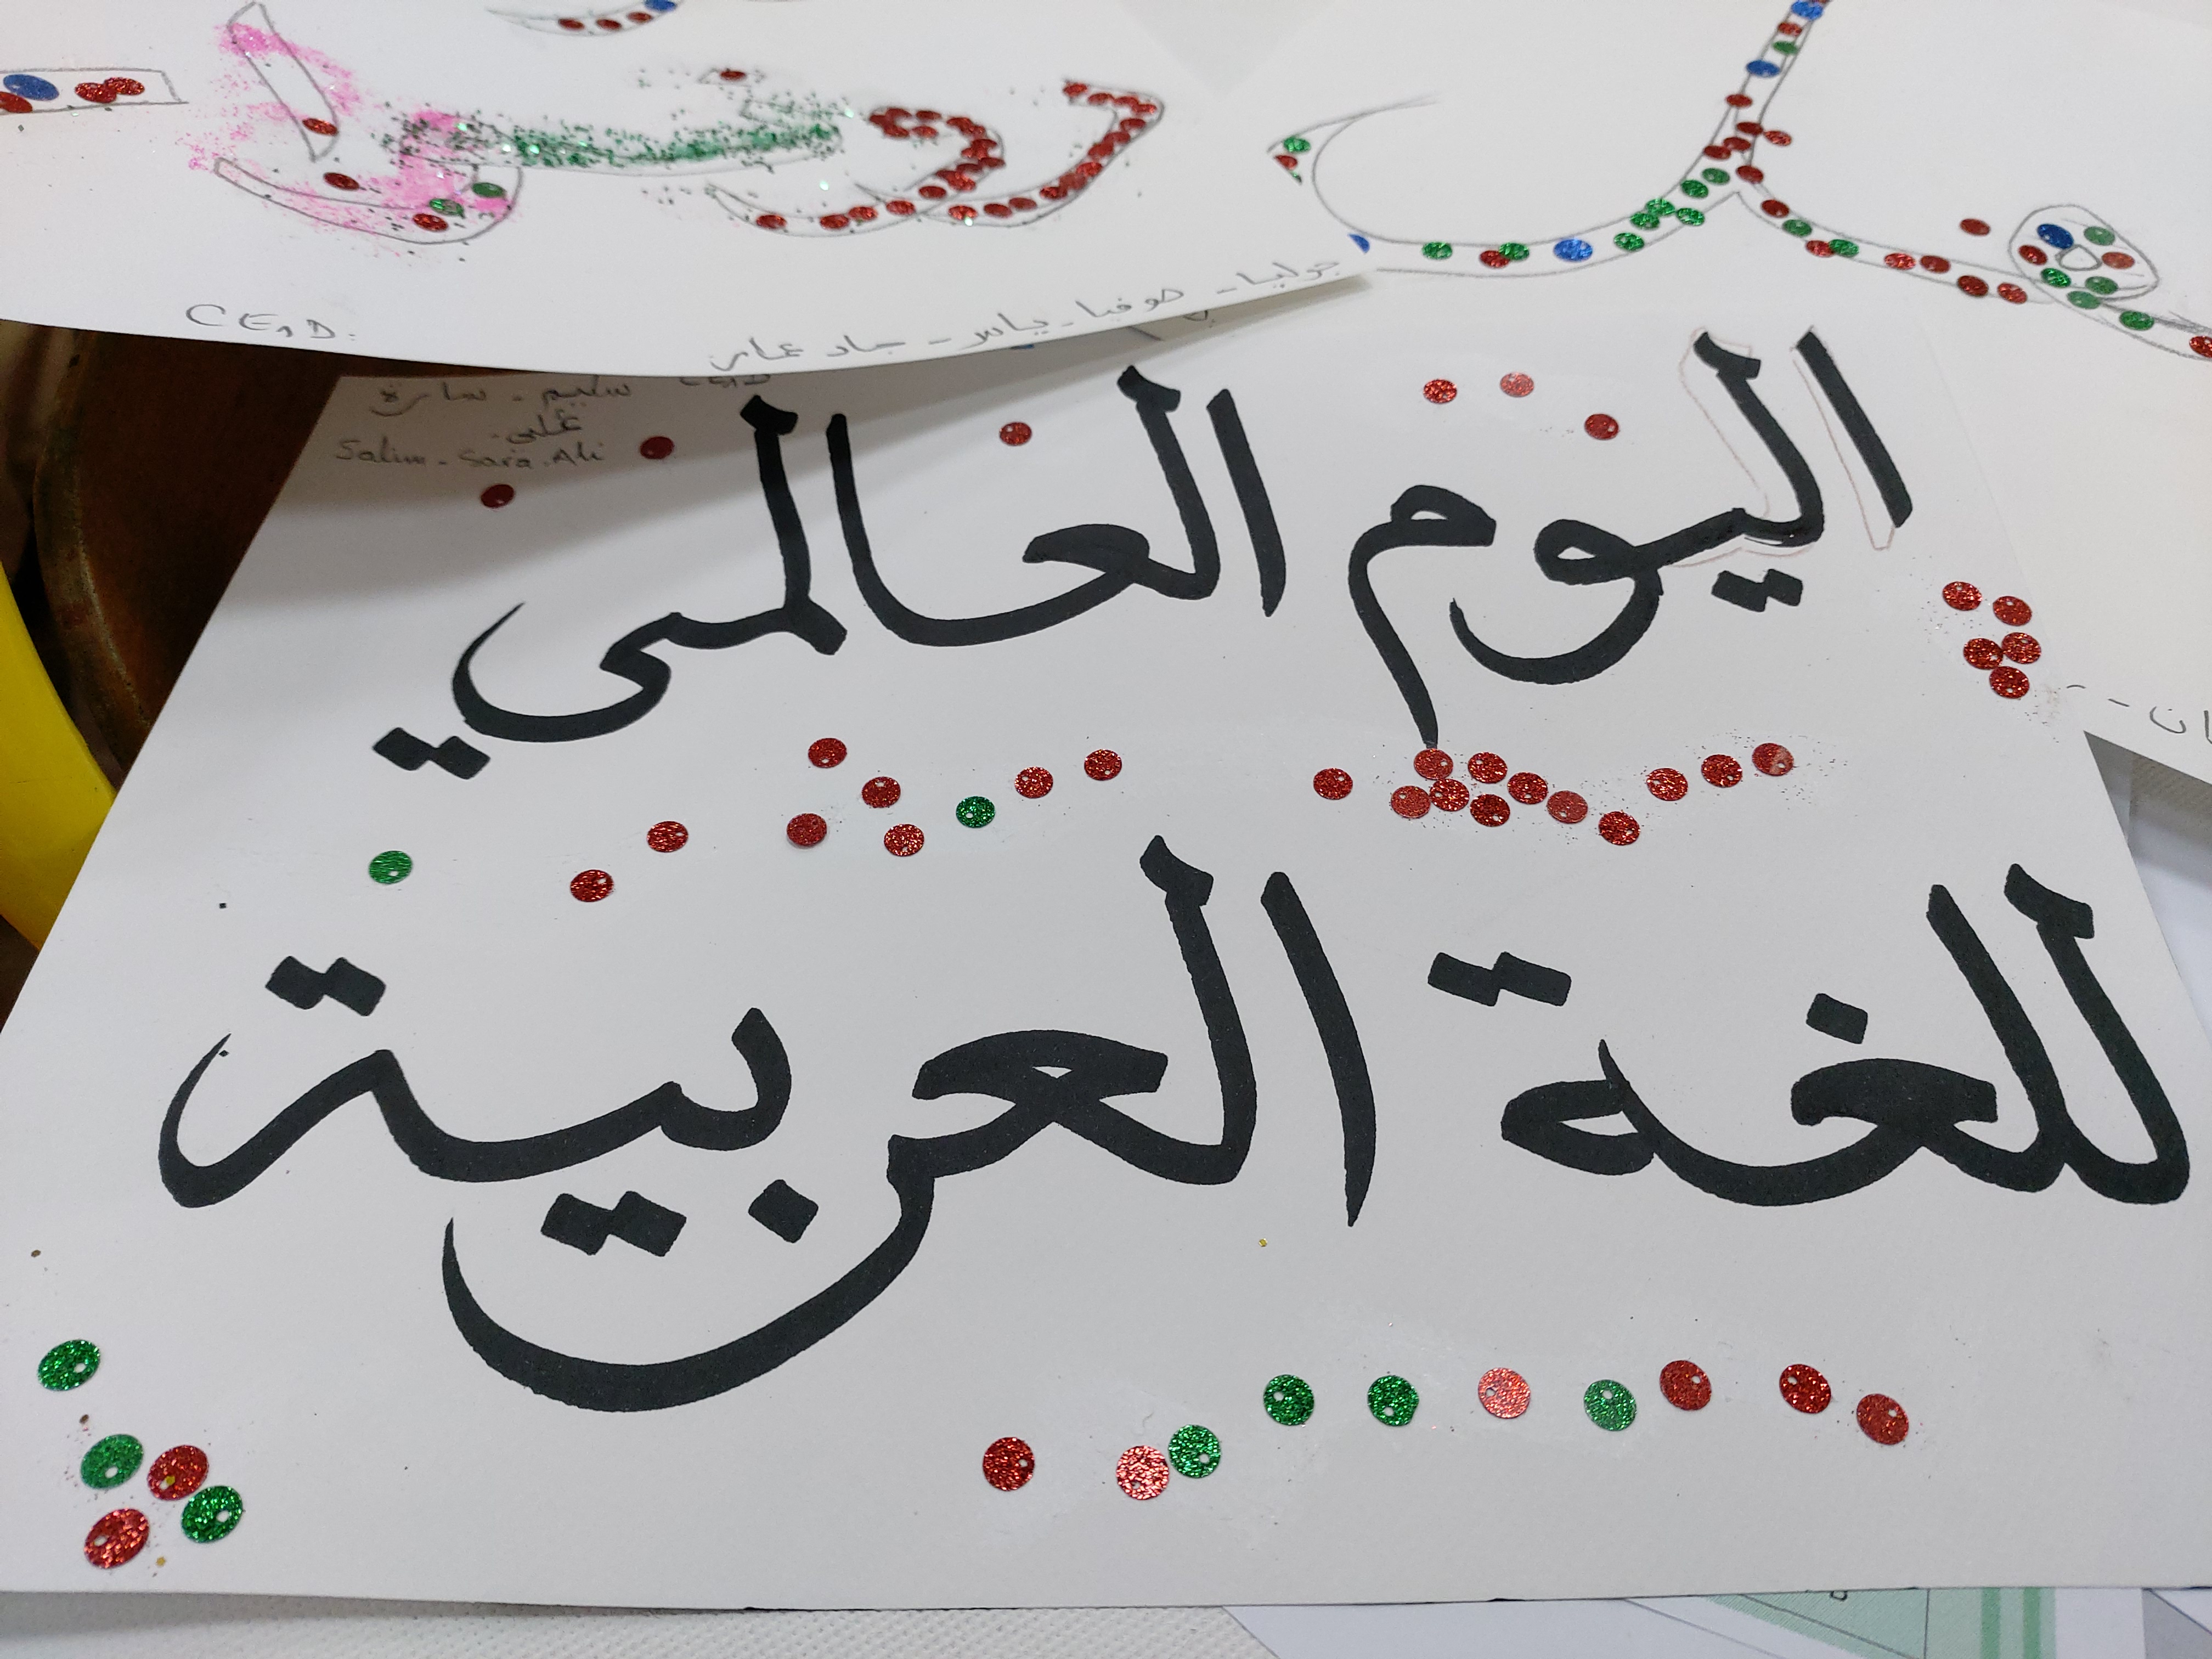 CE1D
جوليا - صوفيا - ياس - جاد عمار
CE1D
سليم - سارة
علي
Salim - Sara . Ali
اليوم العالمي
للغة العربية